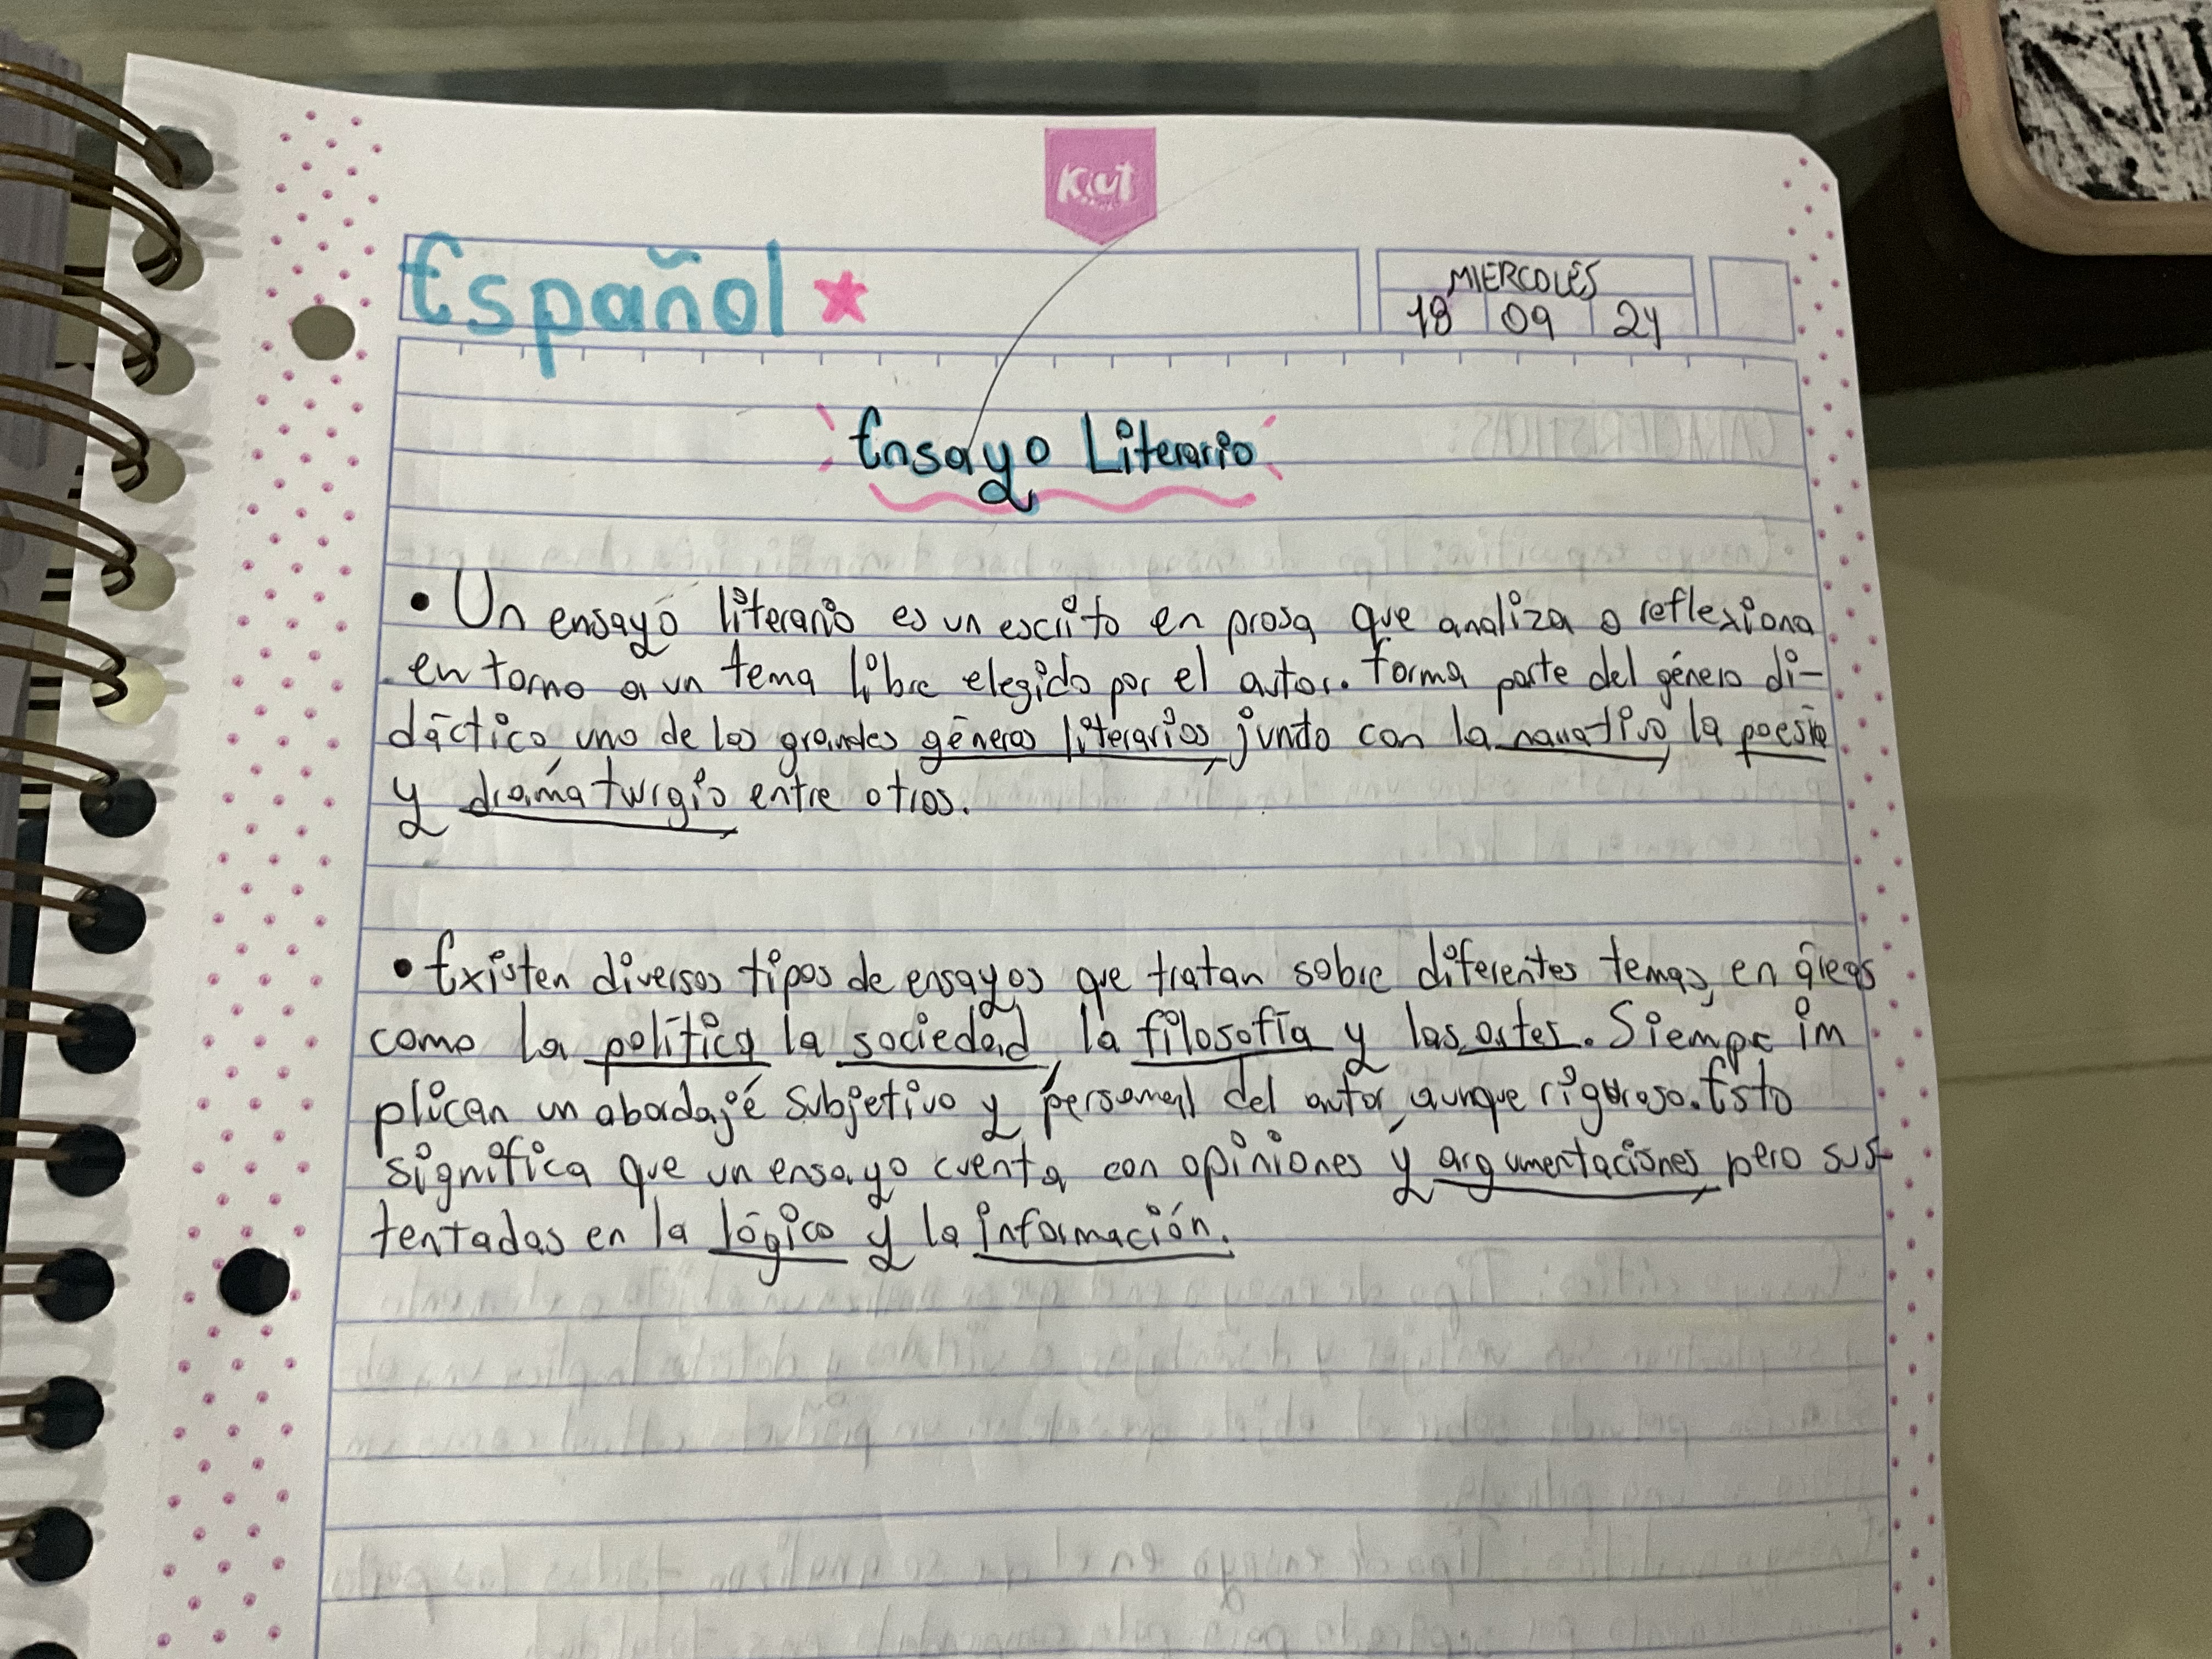 Kiut
Español
MIERCOLES
18 09 24
Ensayo Literario
• Un ensayo literario es un escrito en prosa que analiza o reflexiona
en torno a un tema libre elegido por el autor. Forma parte del género di-
dáctico, uno de los grandes géneros literarios, junto con la narrativa, la poesía
y dramaturgia entre otros.
• Existen diversos tipos de ensayos que tratan sobre diferentes temas, en áreas
como la política la sociedad, la filosofía y las artes. Siempre im
plican un abordaje subjetivo y personal del autor, aunque riguroso. Esto
significa que un ensayo cuenta con opiniones y argumentaciones, pero sus-
tentadas en la lógica y la información.